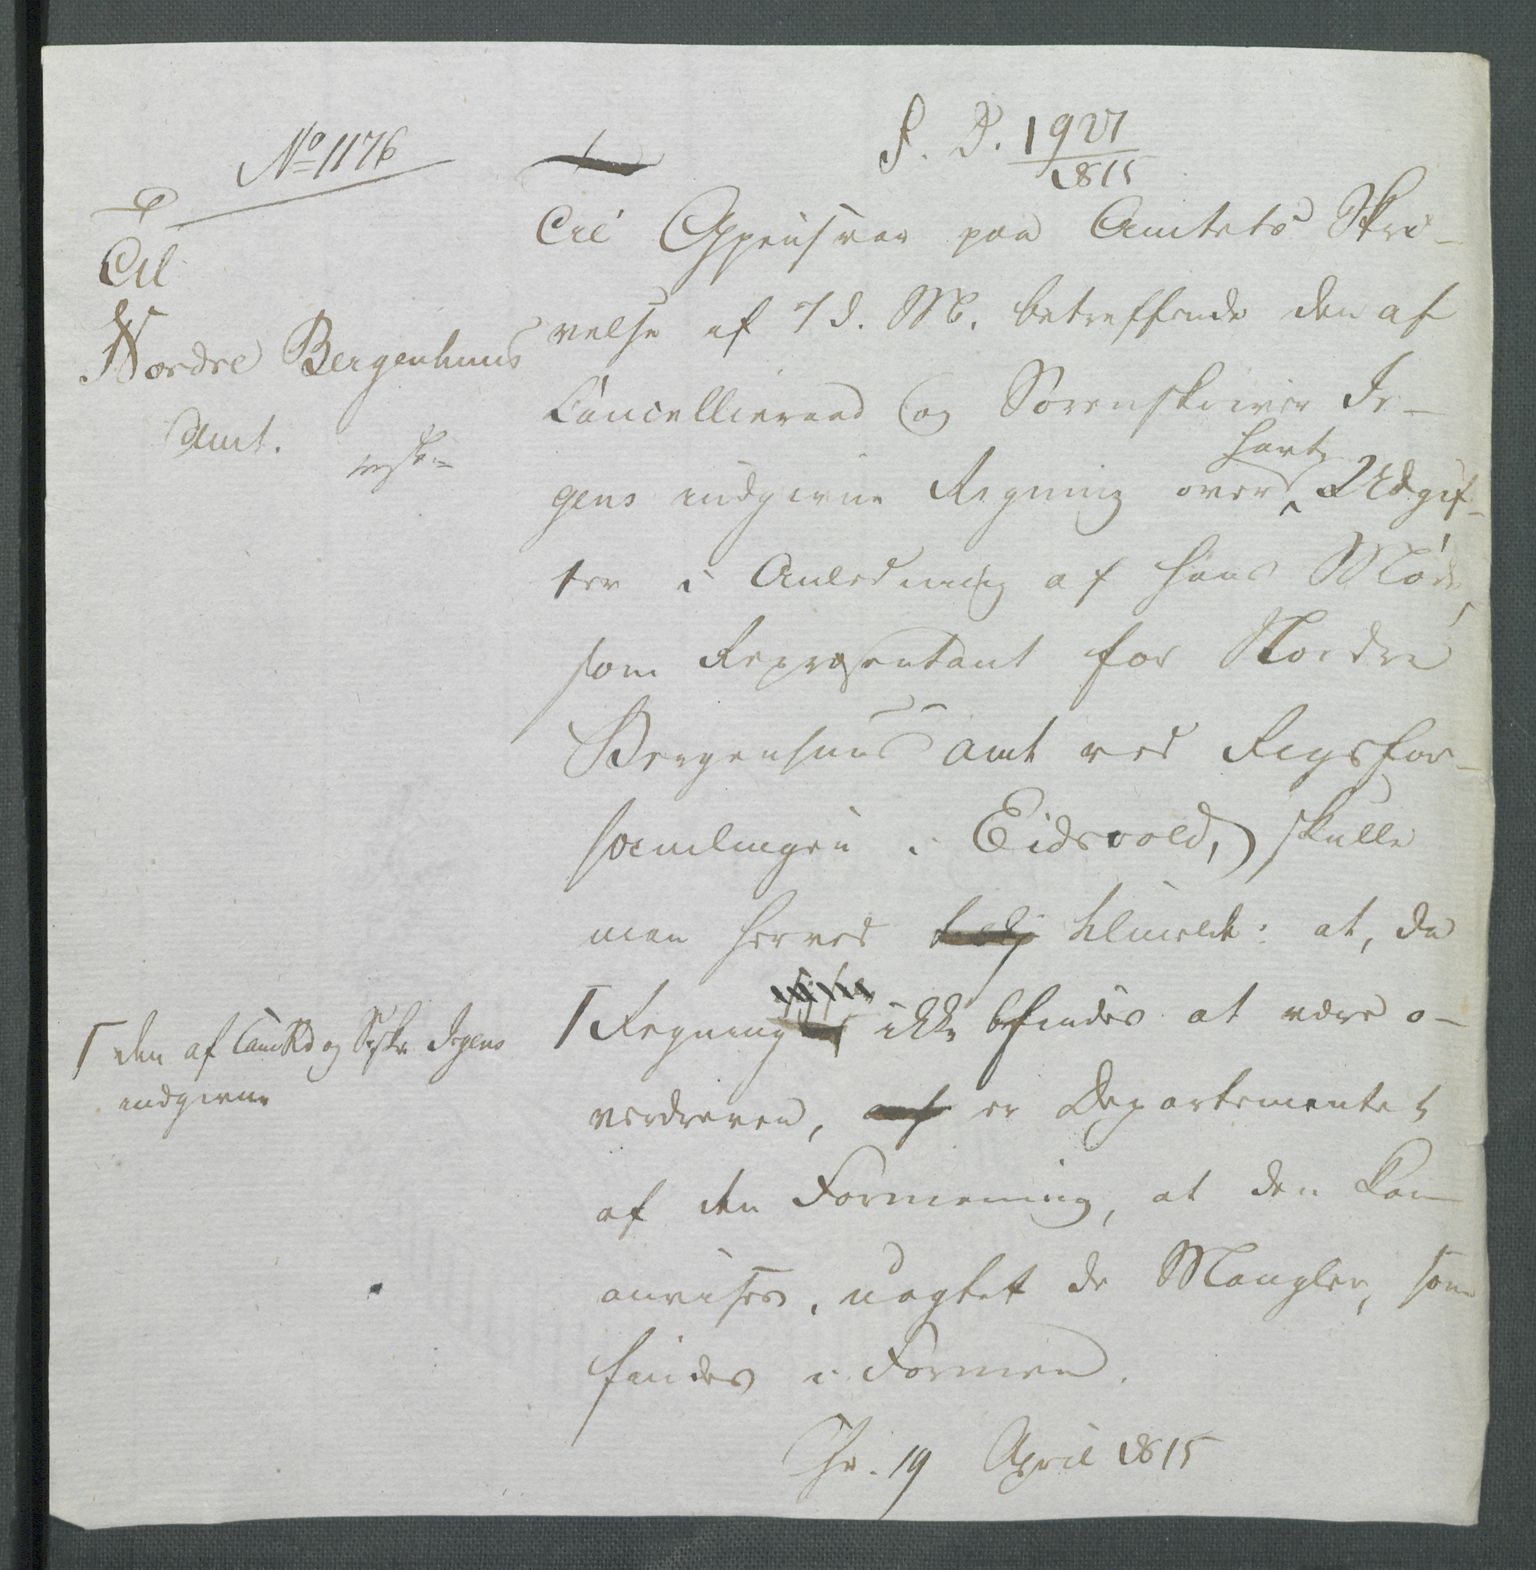 No 1176
S. P. 1927
1815
Til
Nordre Bergenhuus
Amt.
Til Gjensvar paa Amtets Skri-
velse af 7 d. M. betreffende den af
Cancellieraad og Sorenskriver Ir-
gens indgivne Regning over havte Udgif-
ter i Anledning af hans Møde
som Repræsentant for Nordre
Bergenhuus Amt ved Rigsfor-
samlingen i Eidsvold, skulle
man herved tilmelde: at, da
⌈ Regning ikke befindes at være o-
verdreven, er Departementet
af den Formening, at den kan
anvises, uagtet de Mangler, som
findes i Formen.
Chr. 19 April 1815
⌈ den af CancRd og Sskr Irgens
indgivne